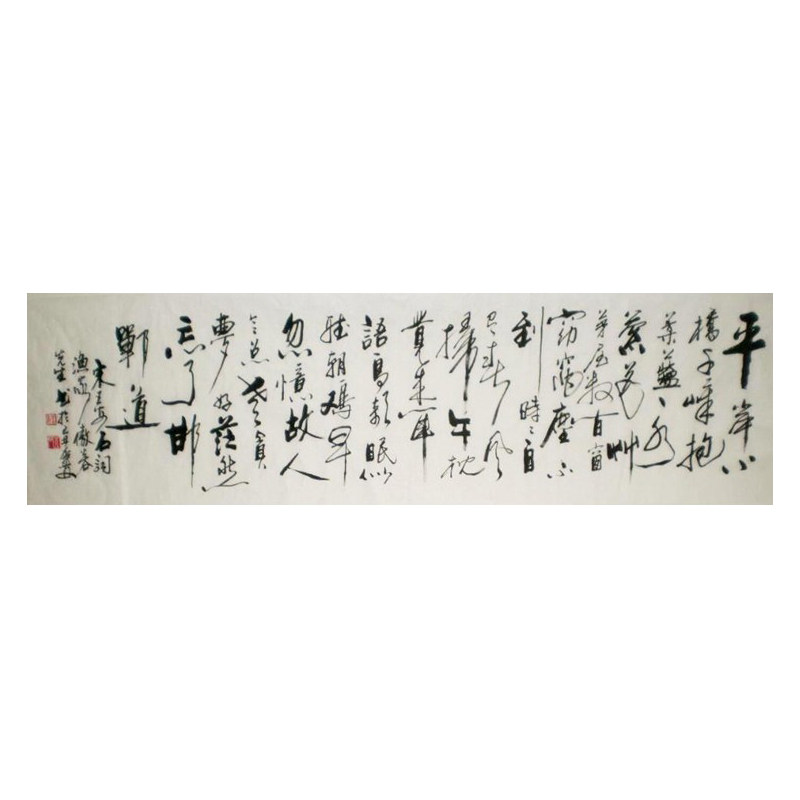 平岸小
橋千嶂抱
柔藍一水
縈花艸
茅屋数间窗
窈窕塵不
到時〻自
有春風
掃午枕
覺来闻
語鳥欹眠似
聽朝鸡早
忽憶故人
今总老貪
夢好茫然
忘了邯
鄲道
宋王安石詞
漁家傲
先生书於